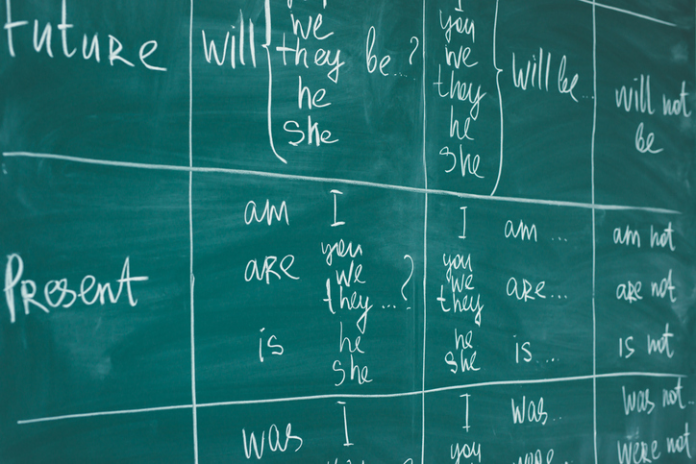 Future
will { we they he she be...?
you we they he she } will be...
will not be
Present
am I
are you we they ...?
is he she
I am ...
you we they are...
he she is...
am not
are not
is not
was I
I was...
you were...
was not...
were not